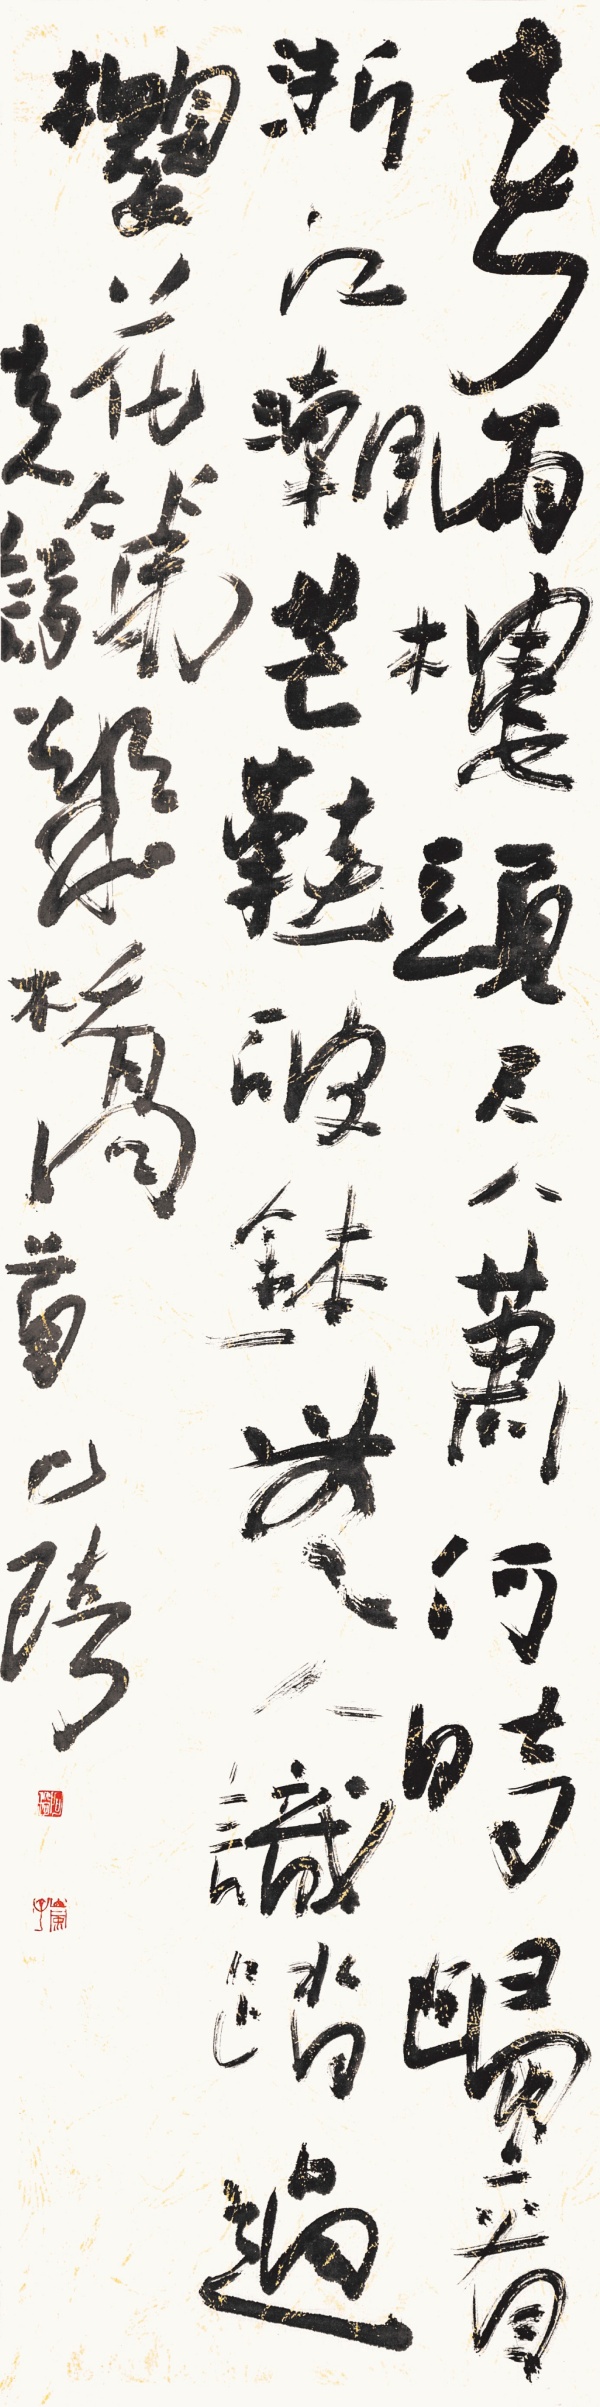 春雨樓頭尺八蕭何時歸看
浙江潮芒鞋破鉢無人識踏過
櫻花第幾橋